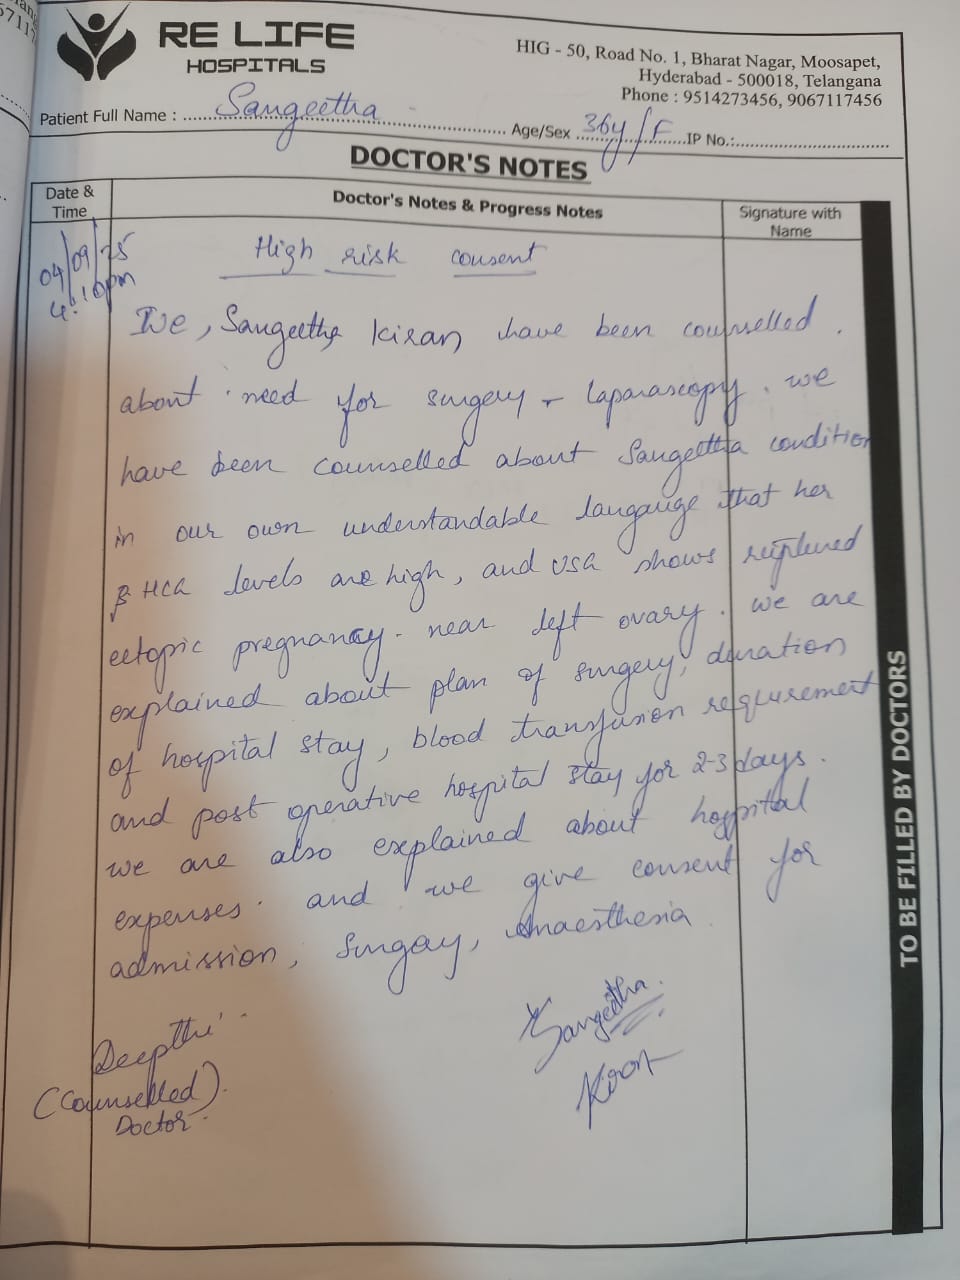 RE LIFE
HOSPITALS
HIG - 50, Road No. 1, Bharat Nagar, Moosapet,
Hyderabad - 500018, Telangana
Phone : 9514273456, 9067117456
Patient Full Name : Sangeetha Age/Sex 36y/F IP No.:
DOCTOR'S NOTES
Date & Time
Doctor's Notes & Progress Notes
Signature with Name
04/09/25
4:10pm
High risk consent
We, Sangeetha Kiran have been counselled
about need for surgery - laparascopy. we
have been counselled about Sangeetha condition
in our own understandable langauge that her
β HCG levels are high, and USG shows ruptured
ectopic pregnancy near left ovary. we are
explained about plan of surgery, duration
of hospital stay, blood transfusion requirement
and post operative hospital stay for 2-3 days.
we are also explained about hospital
expenses. and we give consent for
admission, Surgay, Anaesthesia
Sangeetha
Kiran
Deepthi
(Counselled)
Doctor
TO BE FILLED BY DOCTORS